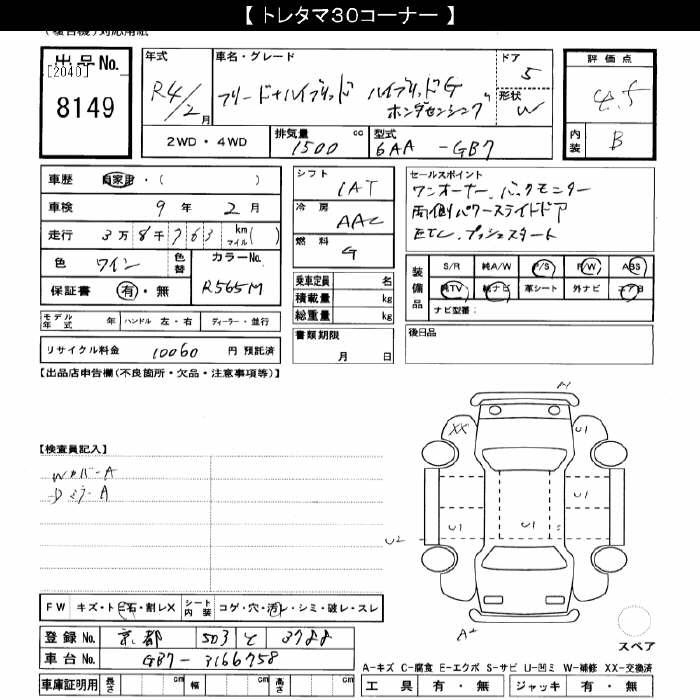 【 トレタマ30コーナー 】
(複合機)対応用紙
出品No. [2040] 8149
年式 R4/2月
車名・グレード フリード+ハイブリッド ハイブリッドG ホンダセンシング
ドア 5
形状 W
2WD・4WD
排気量 1500 cc
型式 6AA-GB7
評価点 4.5
内装 B
車歴 自家用・( )
車検 9年 2月
走行 3万8千763 km マイル( )
色 ワイン
色替
カラーNo. R565M
保証書 有・無
モデル年式 年
ハンドル 左・右
ディーラー・並行
リサイクル料金 10060 円 預託済
シフト IAT
冷房 AAC
燃料 G
乗車定員 名
積載量 kg
総重量 kg
書類期限 月 日
セールスポイント
ワンオーナー、バックモニター
両側パワースライドドア
ETC、プッシュスタート
装備品
S/R 純A/W P/S P/W ABS
純TV 純ナビ 革シート 外ナビ エアB
ナビ型番:
後日品
【出品店申告欄(不良箇所・欠品・注意事項等)】
【検査員記入】
Wカバ-A
Dミラ-A
A1
XX
U1
U1
U1
U1
U2
S
A2
スペア
FW キズ・トビ石・割レX
シート内装 コゲ・穴・汚レ・シミ・破レ・スレ
登録No. 京都 503 と 3788
車台No. GB7-3166758
車庫証明用 長さ cm 幅 cm 高さ cm
A-キズ C-腐食 E-エクボ S-サビ U-凹ミ W-補修 XX-交換済
工具 有・無
ジャッキ 有・無